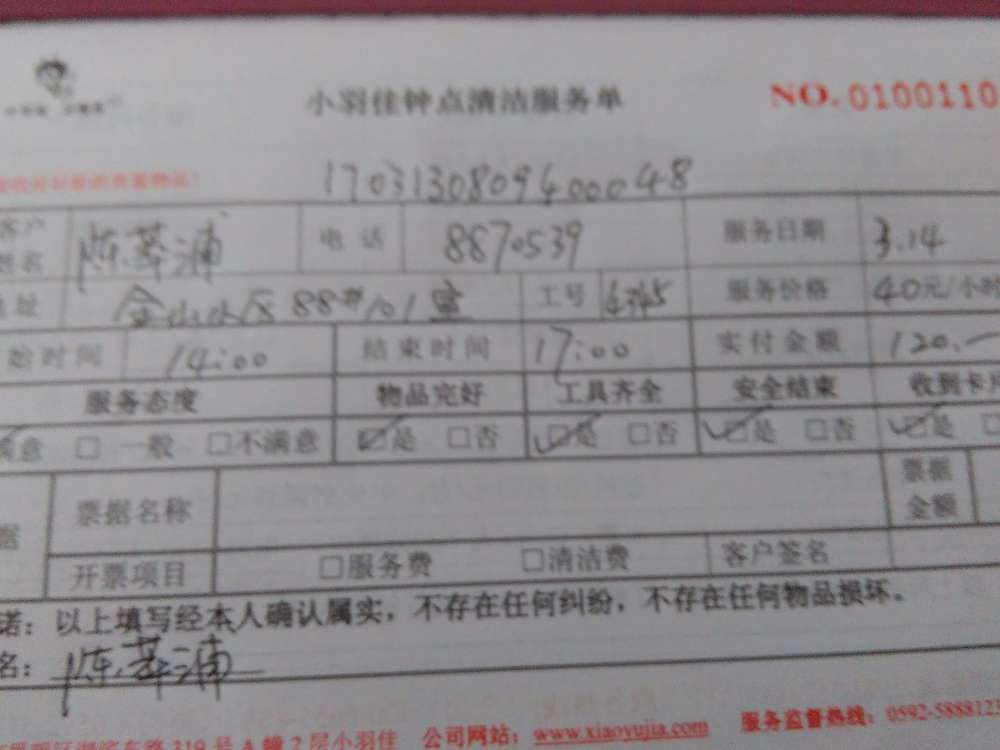 小羽佳钟点清洁服务单 NO. 0100110
17031308094000048
客户姓名 陈萃浦 电话 8870539 服务日期 3.14
地址 金山小区88#101室 工号 服务价格 40元/小时
始时间 14:00 结束时间 17:00 实付金额 120.—
服务态度 物品完好 工具齐全 安全结束 收到卡片
满意 □ 一般 □不满意 ☑是 □否 ☑是 □否 ☑是 □否 ☑是 □
据 票据名称 票据金额
开票项目 □服务费 □清洁费 客户签名
诺:以上填写经本人确认属实,不存在任何纠纷,不存在任何物品损坏。
名:陈萃浦
319号A幢2层小羽佳 公司网站:www.xiaoyujia.com 服务监督热线:0592-5888123